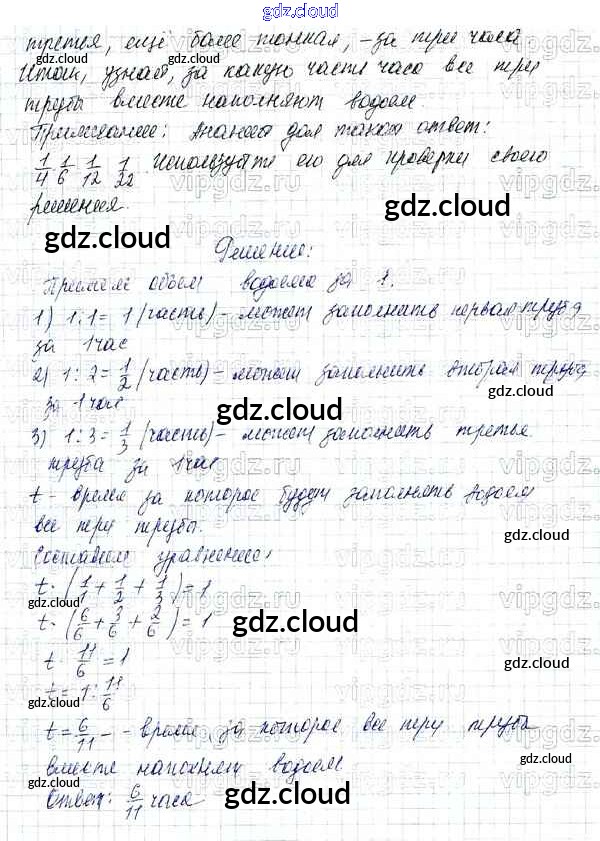 gdz.cloud
третья, ещё более тонкая, - за три часа
Итак, узнай, за какую часть часа все три
трубы вместе наполняют водоем.
Примечание: Анания дал такой ответ:
1/4 1/6 1/12 1/22. Используйте его для проверки своего
решения.
gdz.cloud gdz.cloud
Решение:
Примем объем водоема за 1.
1) 1:1 = 1 (часть) - может заполнить первая труба
за 1 час
2) 1:2 = 1/2 (часть) - может заполнить вторая труба
за 1 час
gdz.cloud
3) 1:3 = 1/3 (часть) - может заполнить третья
труба за 1 час
t - время за которое будут заполнять водоем
все три трубы.
Составим уравнение:
t · (1/1 + 1/2 + 1/3) = 1
t · (6/6 + 3/6 + 2/6) = 1
gdz.cloud
t · 11/6 = 1
t = 1 : 11/6
t = 6/11 - - время, за которое все три трубы
вместе наполнят водоем
Ответ: 6/11 часа
gdz.cloud